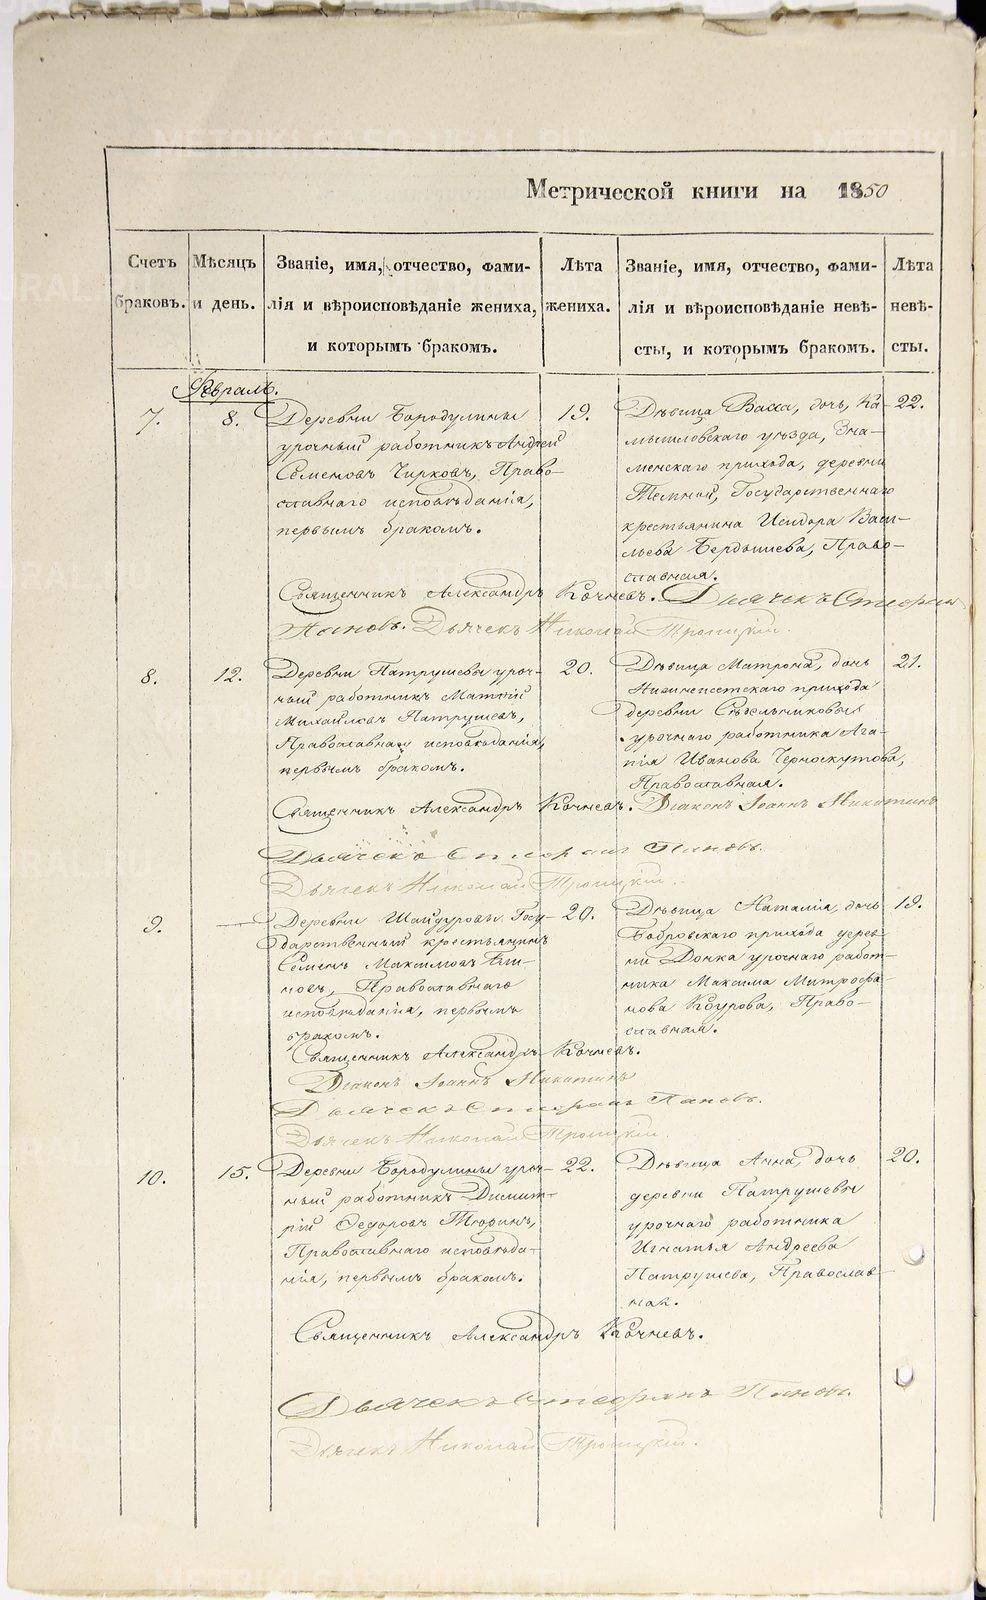 Метрической книги на 1850
Счетъ браковъ.
Мѣсяцъ и день.
Званіе, имя, отчество, фами-
лія и вѣроисповѣданіе жениха,
и которымъ бракомъ.
Лѣта жениха.
Званіе, имя, отчество, фами-
лія и вѣроисповѣданіе невѣ-
сты, и которымъ бракомъ.
Лѣта невѣ-
сты.
Февраль.
7.
8.
Деревни Бородулины
урочный работникъ Андрей
Семеновъ Чирковъ, Право-
славнаго исповѣданія,
первымъ бракомъ.
19.
Дѣвица Васса, дочь, Ка-
мышловскаго уѣзда, Зна-
менскаго прихода, деревни
Темной, Государственнаго
крестьянина Исидора Васи-
льева Бердышева, Право-
славная.
22.
Священникъ Александръ Кочневъ. Дьячекъ Стефанъ
Пановъ. Дьячекъ Николай Троицкій.
8.
12.
Деревни Патрушевы уроч-
ный работникъ Матвій
Михайловъ Патрушевъ,
Православнаго исповѣданія,
первымъ бракомъ.
20.
Дѣвица Матрона, дочь
Нижнеисетскаго прихода
деревни Сѣдельниковы
урочнаго работника Ага-
пія Иванова Черноскутова,
Православная.
21.
Священникъ Александръ Кочневъ. Діаконъ Іоаннъ Никитинъ
Дьячекъ Стефанъ Пановъ.
Дьячекъ Николай Троицкій.
9.
Деревни Шайдуровы Госу-
дарственный крестьянинъ
Семенъ Максимовъ
Православнаго
исповѣданія, первымъ
бракомъ.
20.
Дѣвица Наталія, дочь
Бобровскаго прихода дерев-
ни Донка урочнаго работ-
ника Максима Митрофа-
нова Коурова, Право-
славная.
19.
Священникъ Александръ Кочневъ.
Діаконъ Іоаннъ Никитинъ
Дьячекъ Стефанъ Пановъ.
Дьячекъ Николай Троицкій.
10.
15.
Деревни Бородулины уроч-
ный работникъ Димит-
рій Федоровъ Тюринъ,
Православнаго исповѣда-
нія, первымъ бракомъ.
22.
Дѣвица Анна, дочь
деревни Патрушевы
урочнаго работника
Игнатья Андреева
Патрушева, Православ-
ная.
20.
Священникъ Александръ Кочневъ.
Дьячекъ Стефанъ Пановъ.
Дьячекъ Николай Троицкій.